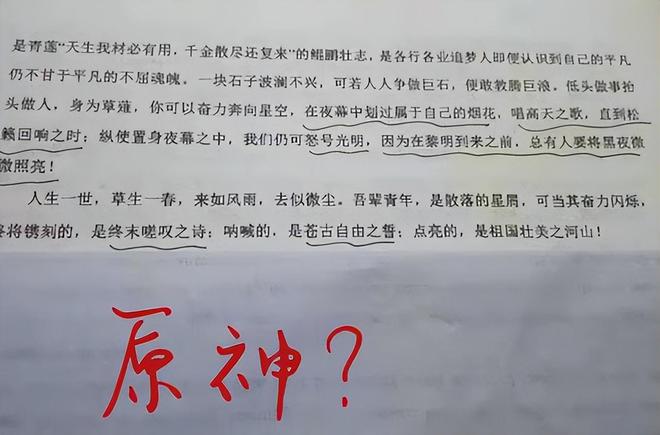 是青莲“天生我材必有用，千金散尽还复来”的鲲鹏壮志，是各行各业追梦人即便认识到自己的平凡
仍不甘于平凡的不屈魂魄。一块石子波澜不兴，可若人人争做巨石，便敢教腾巨浪。低头做事抬
头做人，身为草薙，你可以奋力奔向星空，在夜幕中划过属于自己的烟花，唱高天之歌，直到松
籁回响之时；纵使置身夜幕之中，我们仍可怒号光明，因为在黎明到来之前，总有人要将黑夜微
微照亮！
人生一世，草生一春，来如风雨，去似微尘。吾辈青年，是散落的星屑，可当其奋力闪烁，
终将镌刻的，是终末嗟叹之诗；呐喊的，是苍古自由之誓；点亮的，是祖国壮美之河山！
原神？